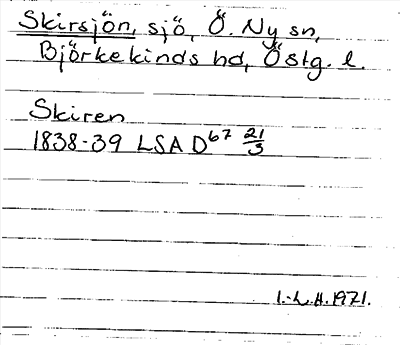 Skirsjön, sjö, Ö. Ny sn,
Björkekinds hd, Östg. l.
Skiren
1838-39 LSA D67 21/3
I.-L.H. 1971.